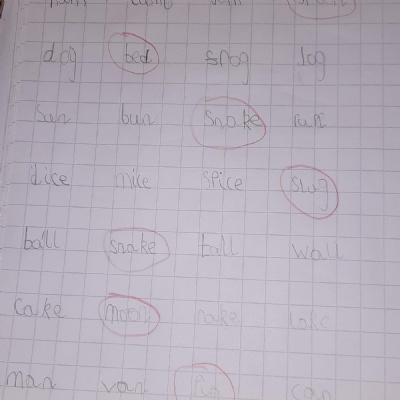 dog bed snog log
sun bun snake run
dice mice spice slug
ball snake tall wall
cake moon make lake
man van can